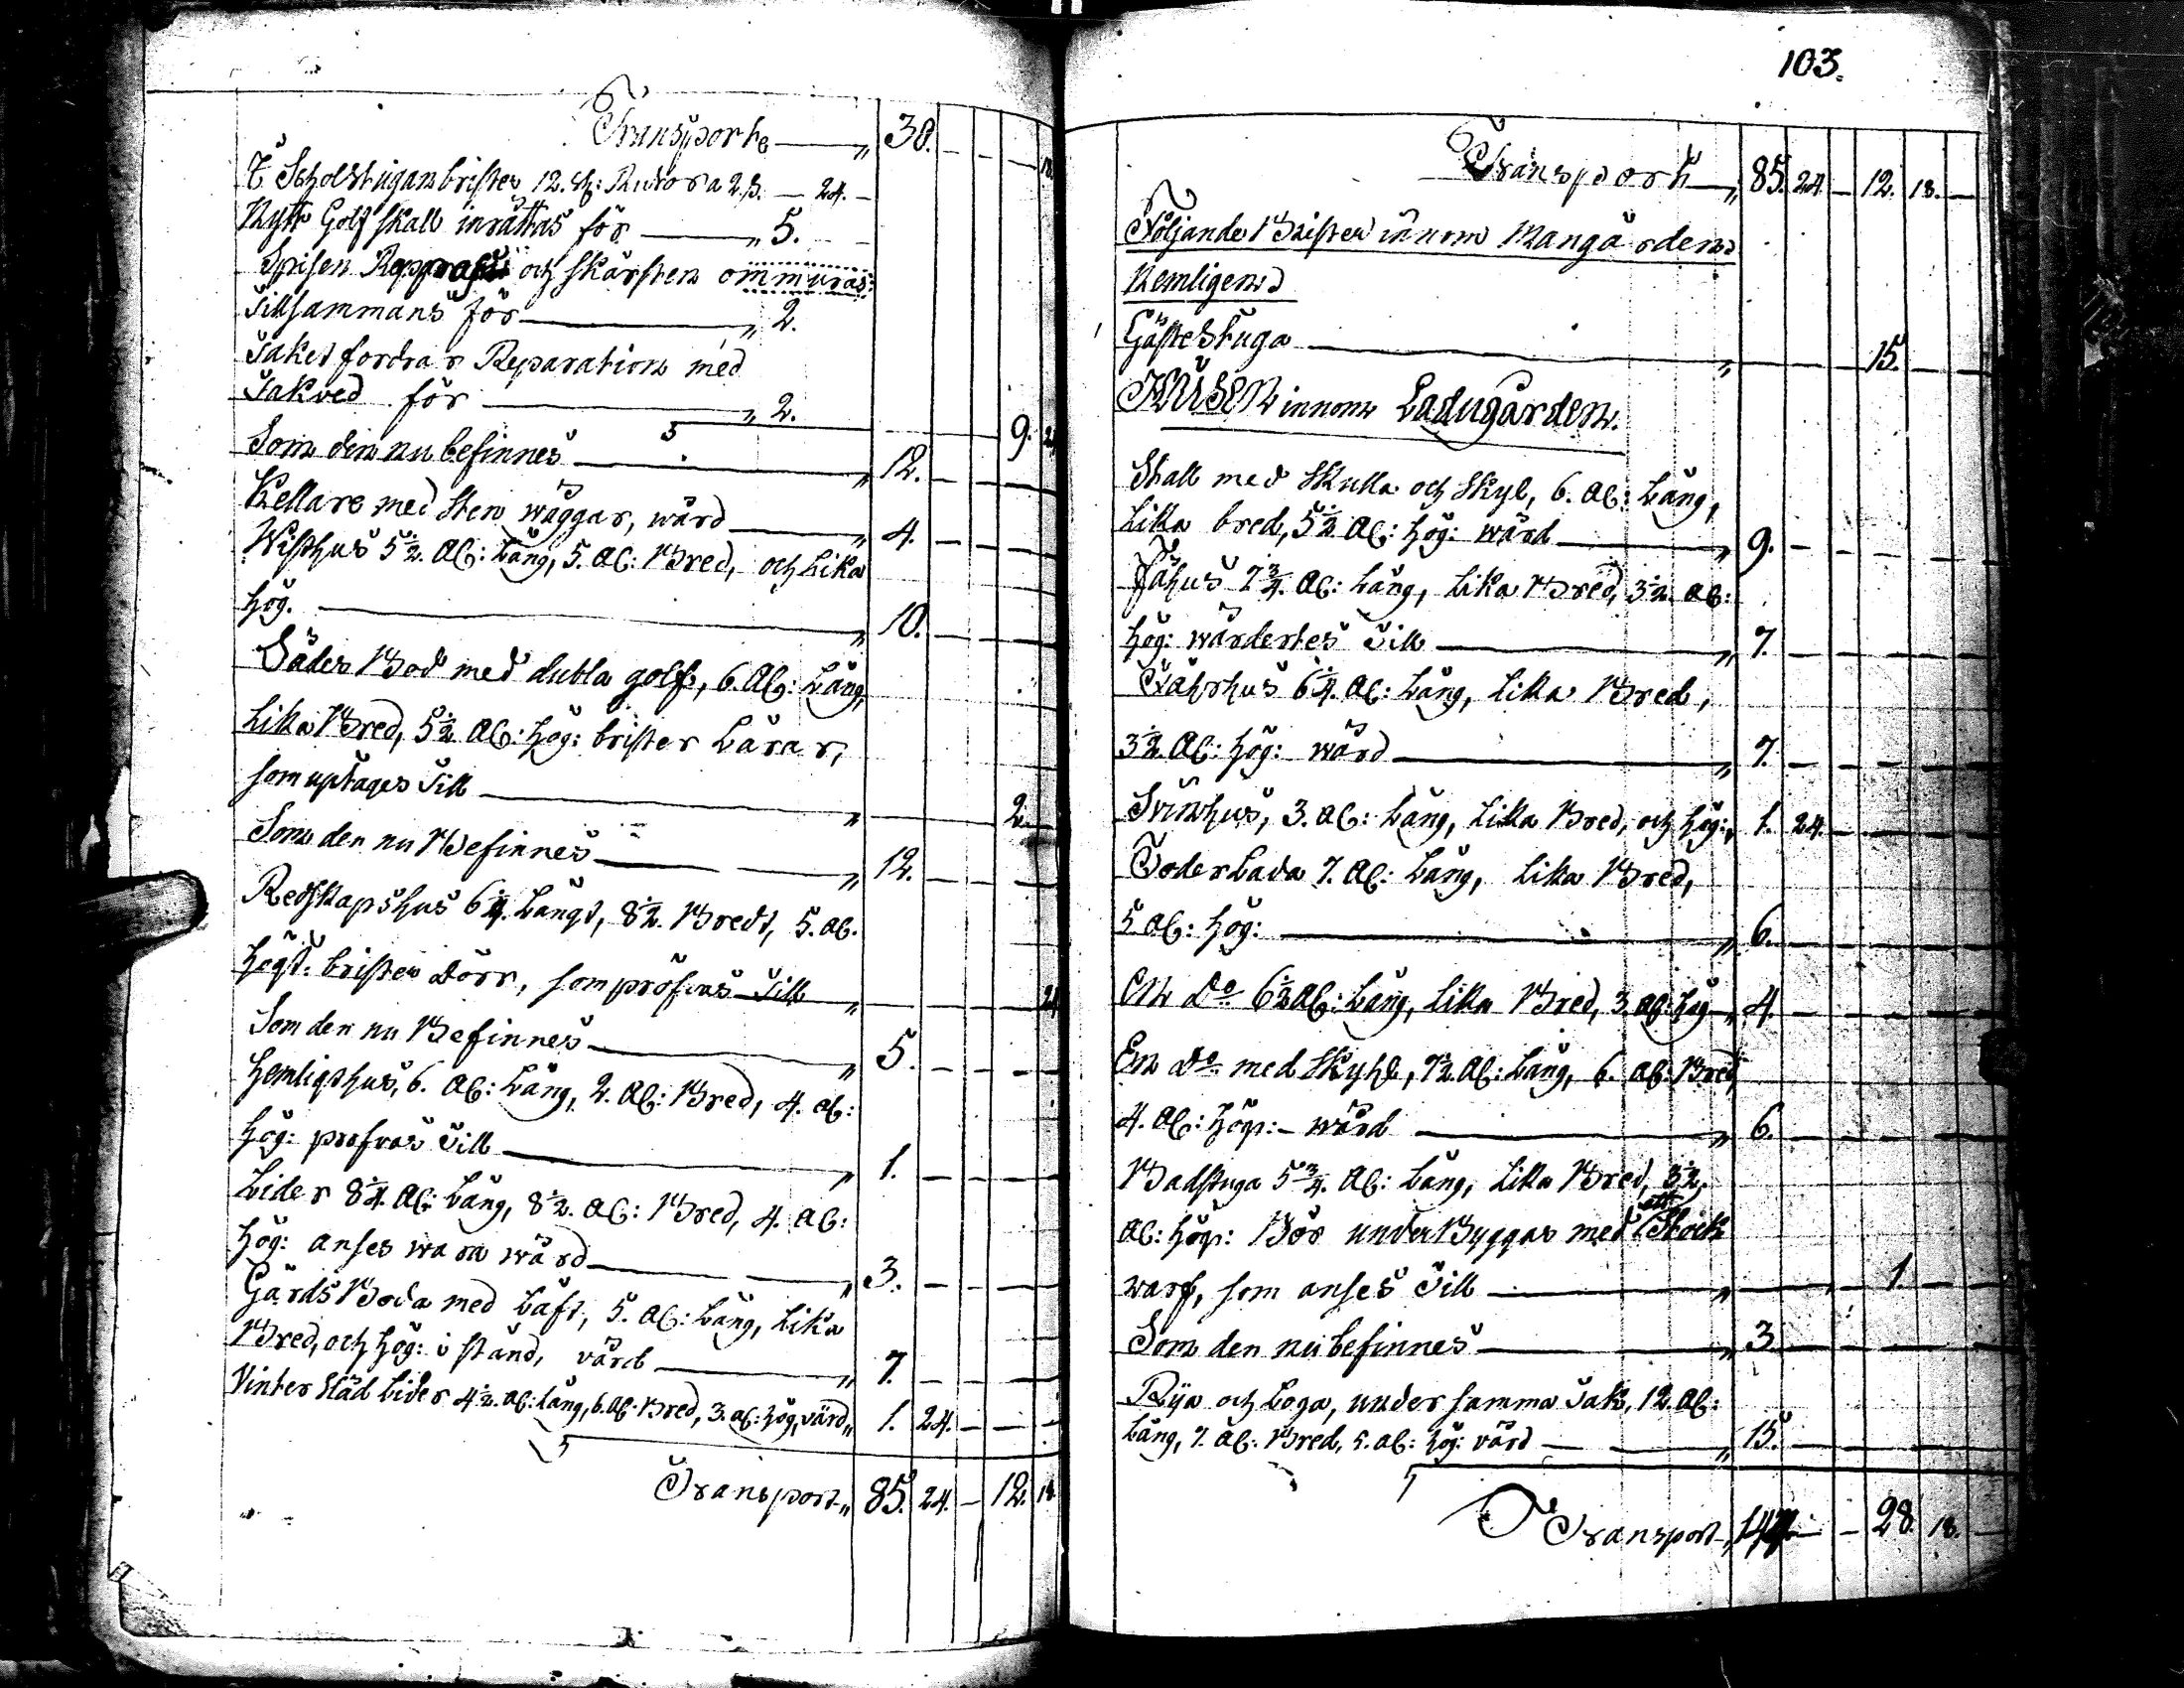 Transport — „ 30. — — — 18.
I Scholstugan brister 12. st: Rutor a 2 ß. — 24. —
Nytt Golf skall inrättas för — „ 5. — —
Spisen Repparas och skårsten ommuras:
Tillsammans för — „ 2.
Taket fordrar Reparation med
Takved för — „ 2. 9. 24
Som den nu befinnes — „ 12. — — —
Kellare med sten wäggar, wärd — „ 4. — — —
Wisthus 5 1/2. Al: Lång, 5. Al: Bred, och Lika
hög. — „ 10. — — —
Sädes Bod med dubla golf, 6. Al: Lång,
Lika Bred, 5 1/2 Al: hög: brister Lårar,
som uptages Till — „ — 2. —
Som den nu Befinnes — „ 12. — — —
Redskapshus 6 1/4. Långt, 8 1/2. Bredt, 5. Al.
högt: brister Dörr, som pröfvas Till — „ — — 24
Som den nu Befinnes — „ 5. — — —
Hemligthus, 6. Al: Lång, 2. Al: Bred, 4. Al:
hög: profvas Till — „ 1. — — —
Lider 8 1/4. Al: Lång, 8 1/2. Al: Bred, 4. Al:
hög: anses wara wärd — „ 3. — — —
Gårds Boda med Låft, 5. Al: Lång, Lika
Bred, och hög: i stånd, värd — „ 7. — — —
Vinter städ Lider 4 1/2. Al: Lång, 6. Al. Bred, 3. Al: hög, värd „ 1. 24. — — —
Transport „ 85. 24. — 12. 18.
103.
Transport — „ 85. 24. — 12. 18. —
Följande Brister innom Mangården
Nemligen
Gästestuga — „ — — — 15. — —
HUSEN innom Ladugården.
Stall med Skulla och Skyl, 6. Al: Lång,
Lika bred, 5 1/2 Al: hög: wärd — „ 9. — — — — —
Fähus 7 3/4. Al: Lång, Lika Bred, 3 1/2. Al:
hög: wärdertes Till — „ 7. — — — — —
Fåhrhus 6 1/4. Al: Lång, Lika Bred,
3 1/2. Al: hög: wärd — „ 7. — — — — —
Svinhus, 3. Al: Lång, Lika Bred, och hög: „ 1. 24. — — — —
Foder Lada 7. Al: Lång, Lika Bred,
5 Al: hög: — „ 6. — — — — —
En do 6 1/2 Al: Lång, Lika Bred, 3. Al: hög „ 4. — — — — —
En do med Skyhl, 7 1/2 Al: Lång, 6. Al: Bred,
4. Al: hög: — wärd — „ 6. — — — — —
Badstuga 5 3/4. Al: Lång, Lika Bred, 3 1/2.
Al: hög: Bör under Byggas med ett Stock
warf, som anses Till — „ — — — 1. — —
Som den nu befinnes — „ 3 — — — — —
Rija och Loga, under samma Tak, 12. Al:
Lång, 7. Al: Bred, 5. Al: hög: värd — „ 15. — — — — —
Transport „ 144. — — 28. 18. —